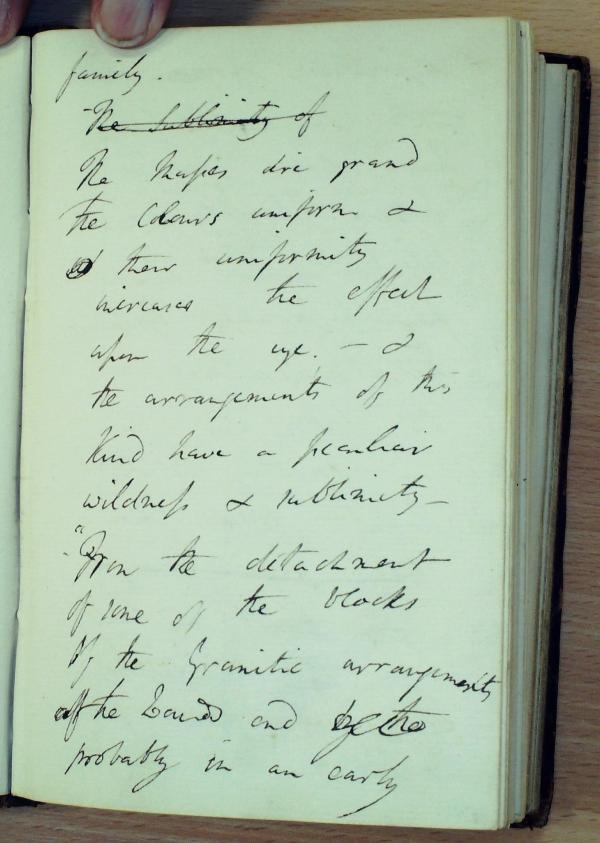 family.
The sublimity of
The Masses are grand
the colours uniform &
their uniformity
increases the effect
upon the eye. – &
the arrangements of this
Kind have a peculiar
wildness & sublimity –
"From the detachment
of some of the blocks
Of the Granitic arrangements
of the Land's End
probably in an early